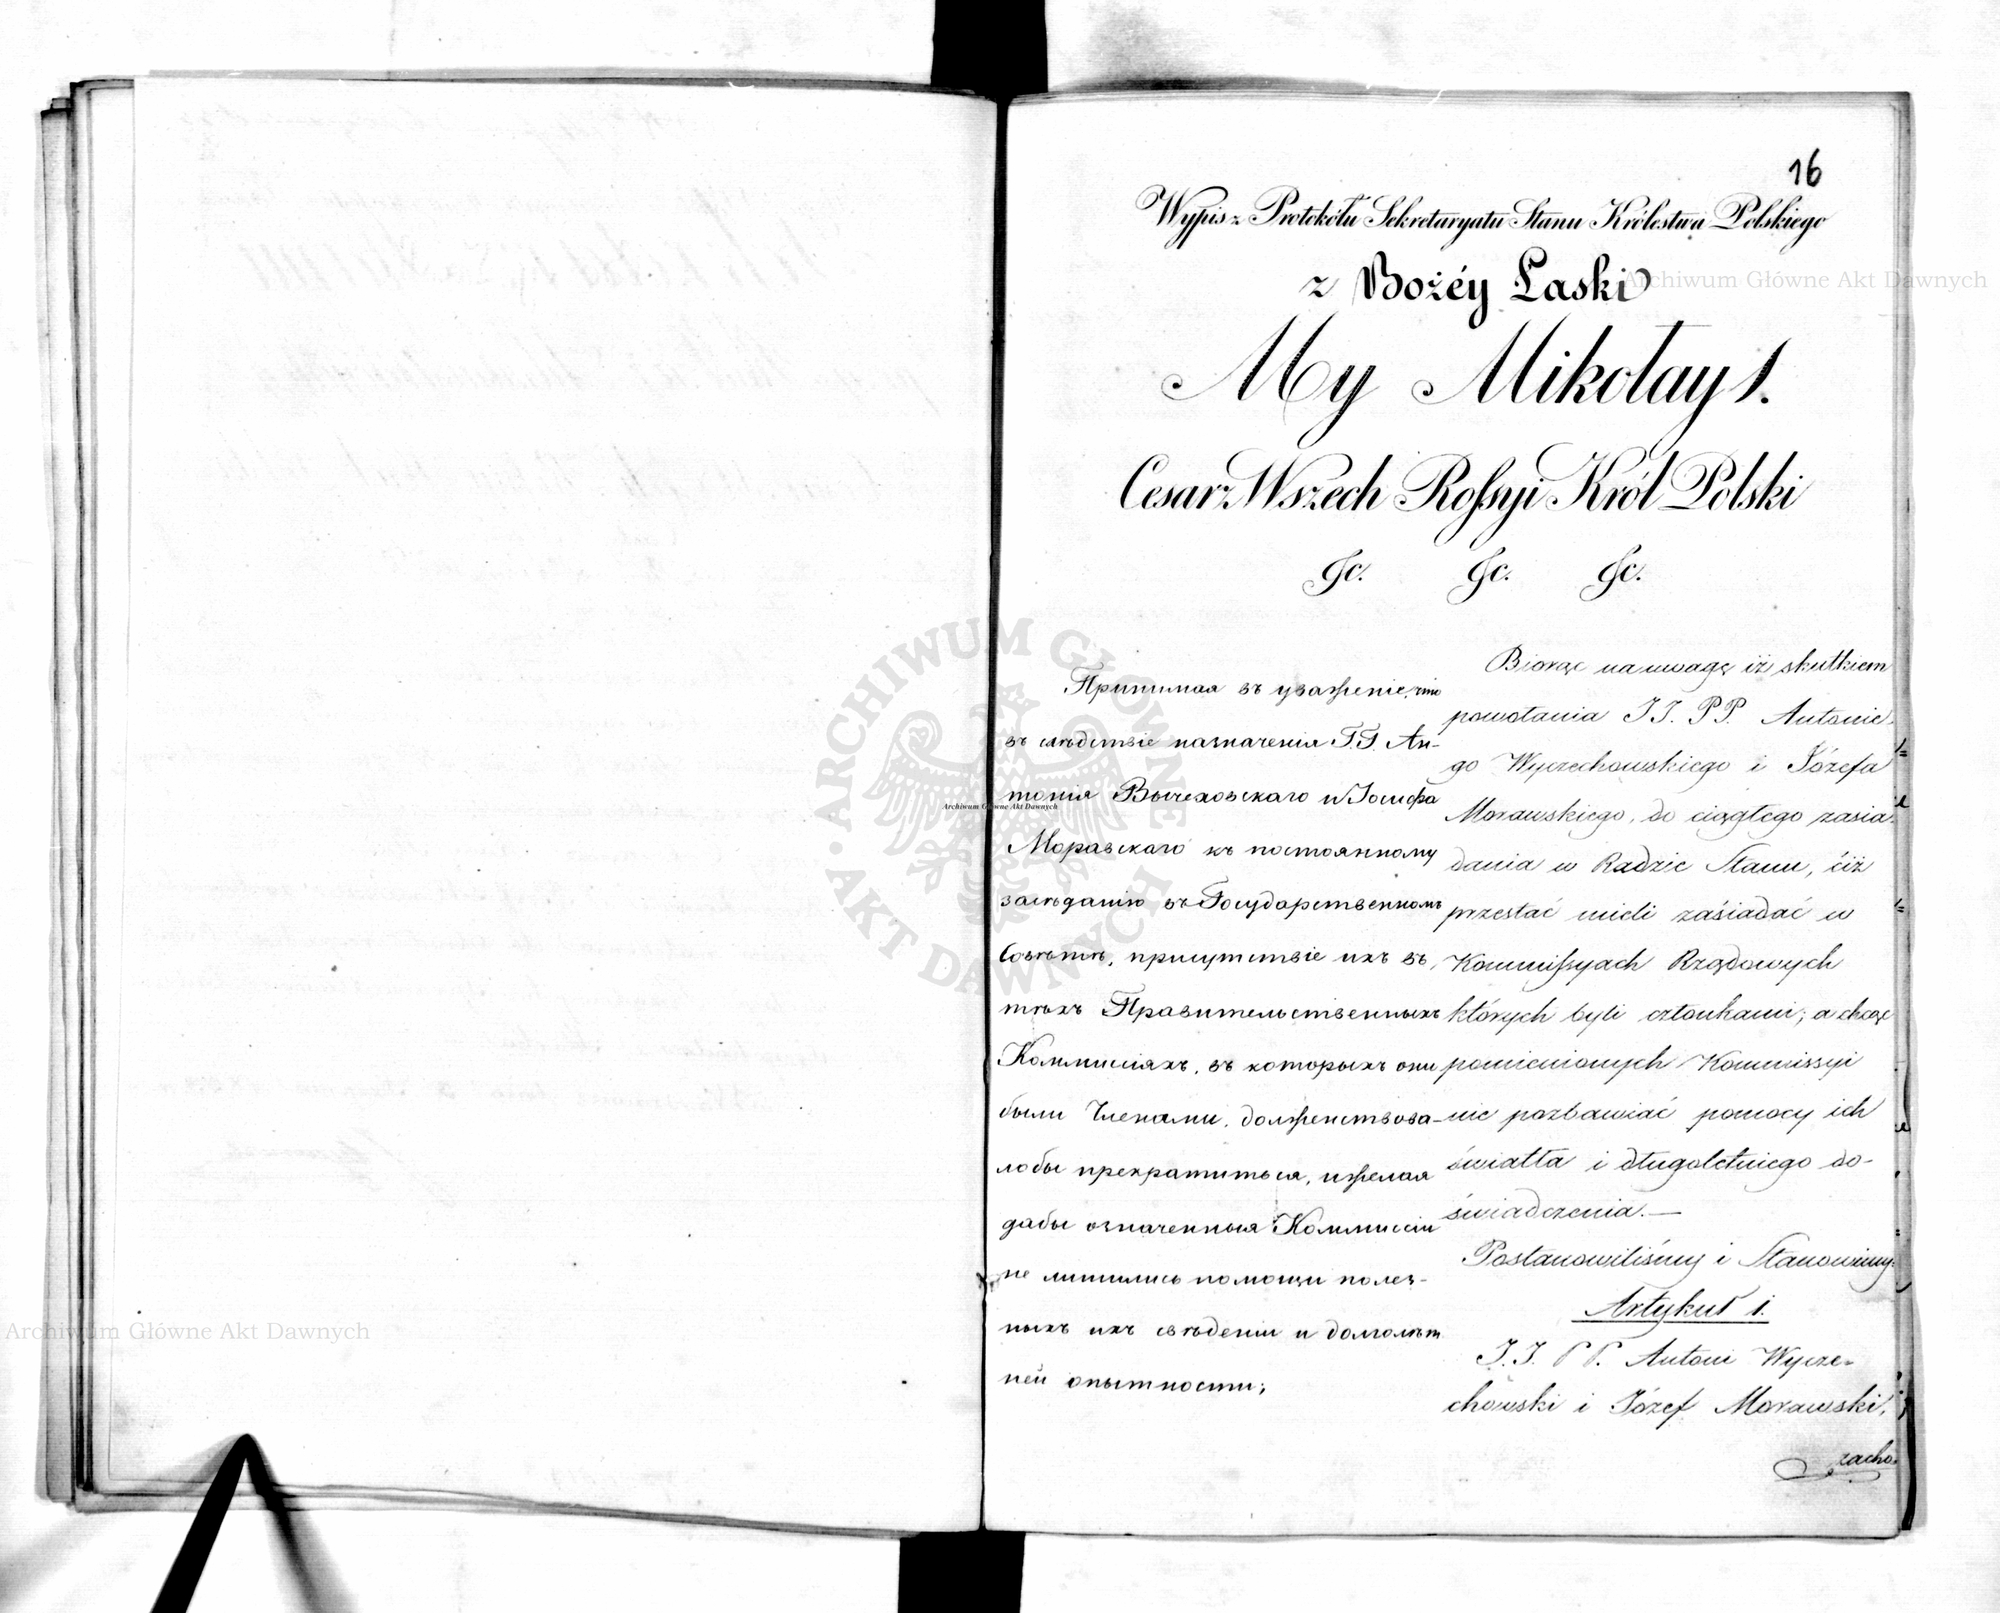 16
Wypis z Protokółu Sekretaryatu Stanu Królestwa Polskiego
z Bożéy Łaski
My Mikołay 1.
Cesarz Wszech Rossyi Król Polski
&c. &c. &c.
Принимая въ уваженіе, что
въ слѣдствіе назначенія Г.Г. Ан-
тонія Вычеховскаго и Іосифа
Моравскаго къ постоянному
засѣданію въ Государственномъ
Совѣтѣ, присутствіе ихъ въ
тѣхъ Правительственныхъ
Коммисіяхъ, въ которыхъ они
были Членами, долженствова-
лобы прекратиться, и желая
дабы означенныя Коммиссіи
не лишились помощи полез-
ныхъ ихъ свѣденій и долголѣт
ней опытности;
Biorąc na uwagę iż skutkiem
powołania J J. P P. Antonie-
go Wyczechowskiego i Józefa
Morawskiego, do ciągłego zasia-
dania w Radzie Stanu, ciż
przestać mieli zásiadać w
Kommissyach Rządowych
których byli członkami; a chcąc
pomienionych Kommissyi
nie pozbawiać pomocy ich
światła i długoletniego do-
świadczenia.—
Postanowiliśmy i Stanowimy
Artykuł 1.
J. J. P P. Antoni Wycze-
chowski i Józef Morawski,
zacho-
Archiwum Główne Akt Dawnych
Archiwum Główne Akt Dawnych
Archiwum Główne Akt Dawnych
ARCHIWUM GŁÓWNE
AKT DAWNYCH